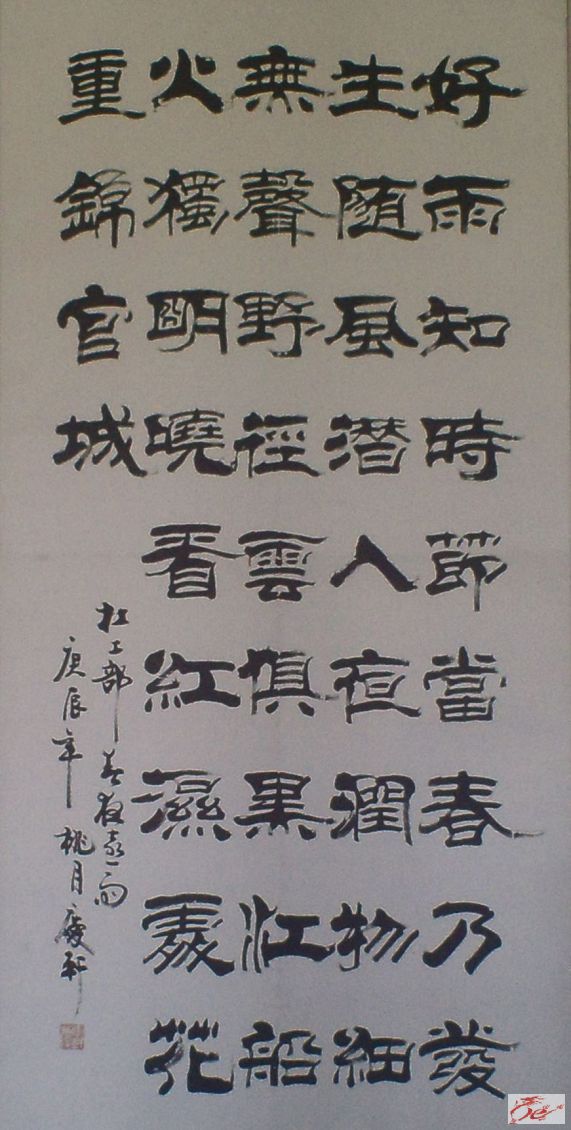 好雨知時節當春乃發
生随風潜入夜潤物細
無聲野徑雲俱黑江船
火獨明曉看紅濕處花
重錦官城
杜工部春夜喜雨
庚辰年桃月慶軒